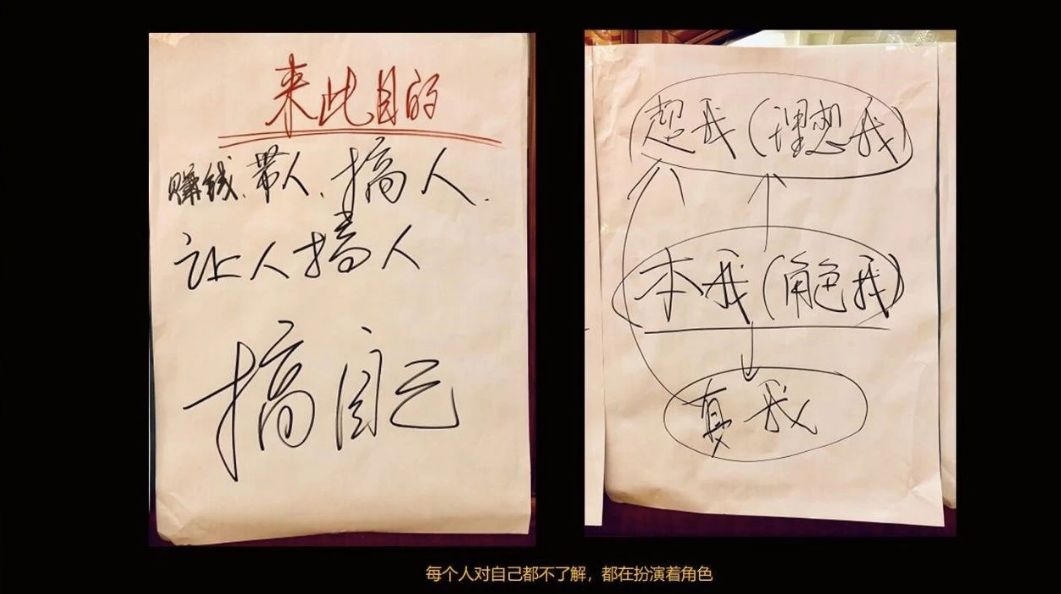 来此目的
赚钱、带人、搞人、
让人搞人
搞自己
超我(理想我)
本我(角色我)
真我
每个人对自己都不了解，都在扮演着角色